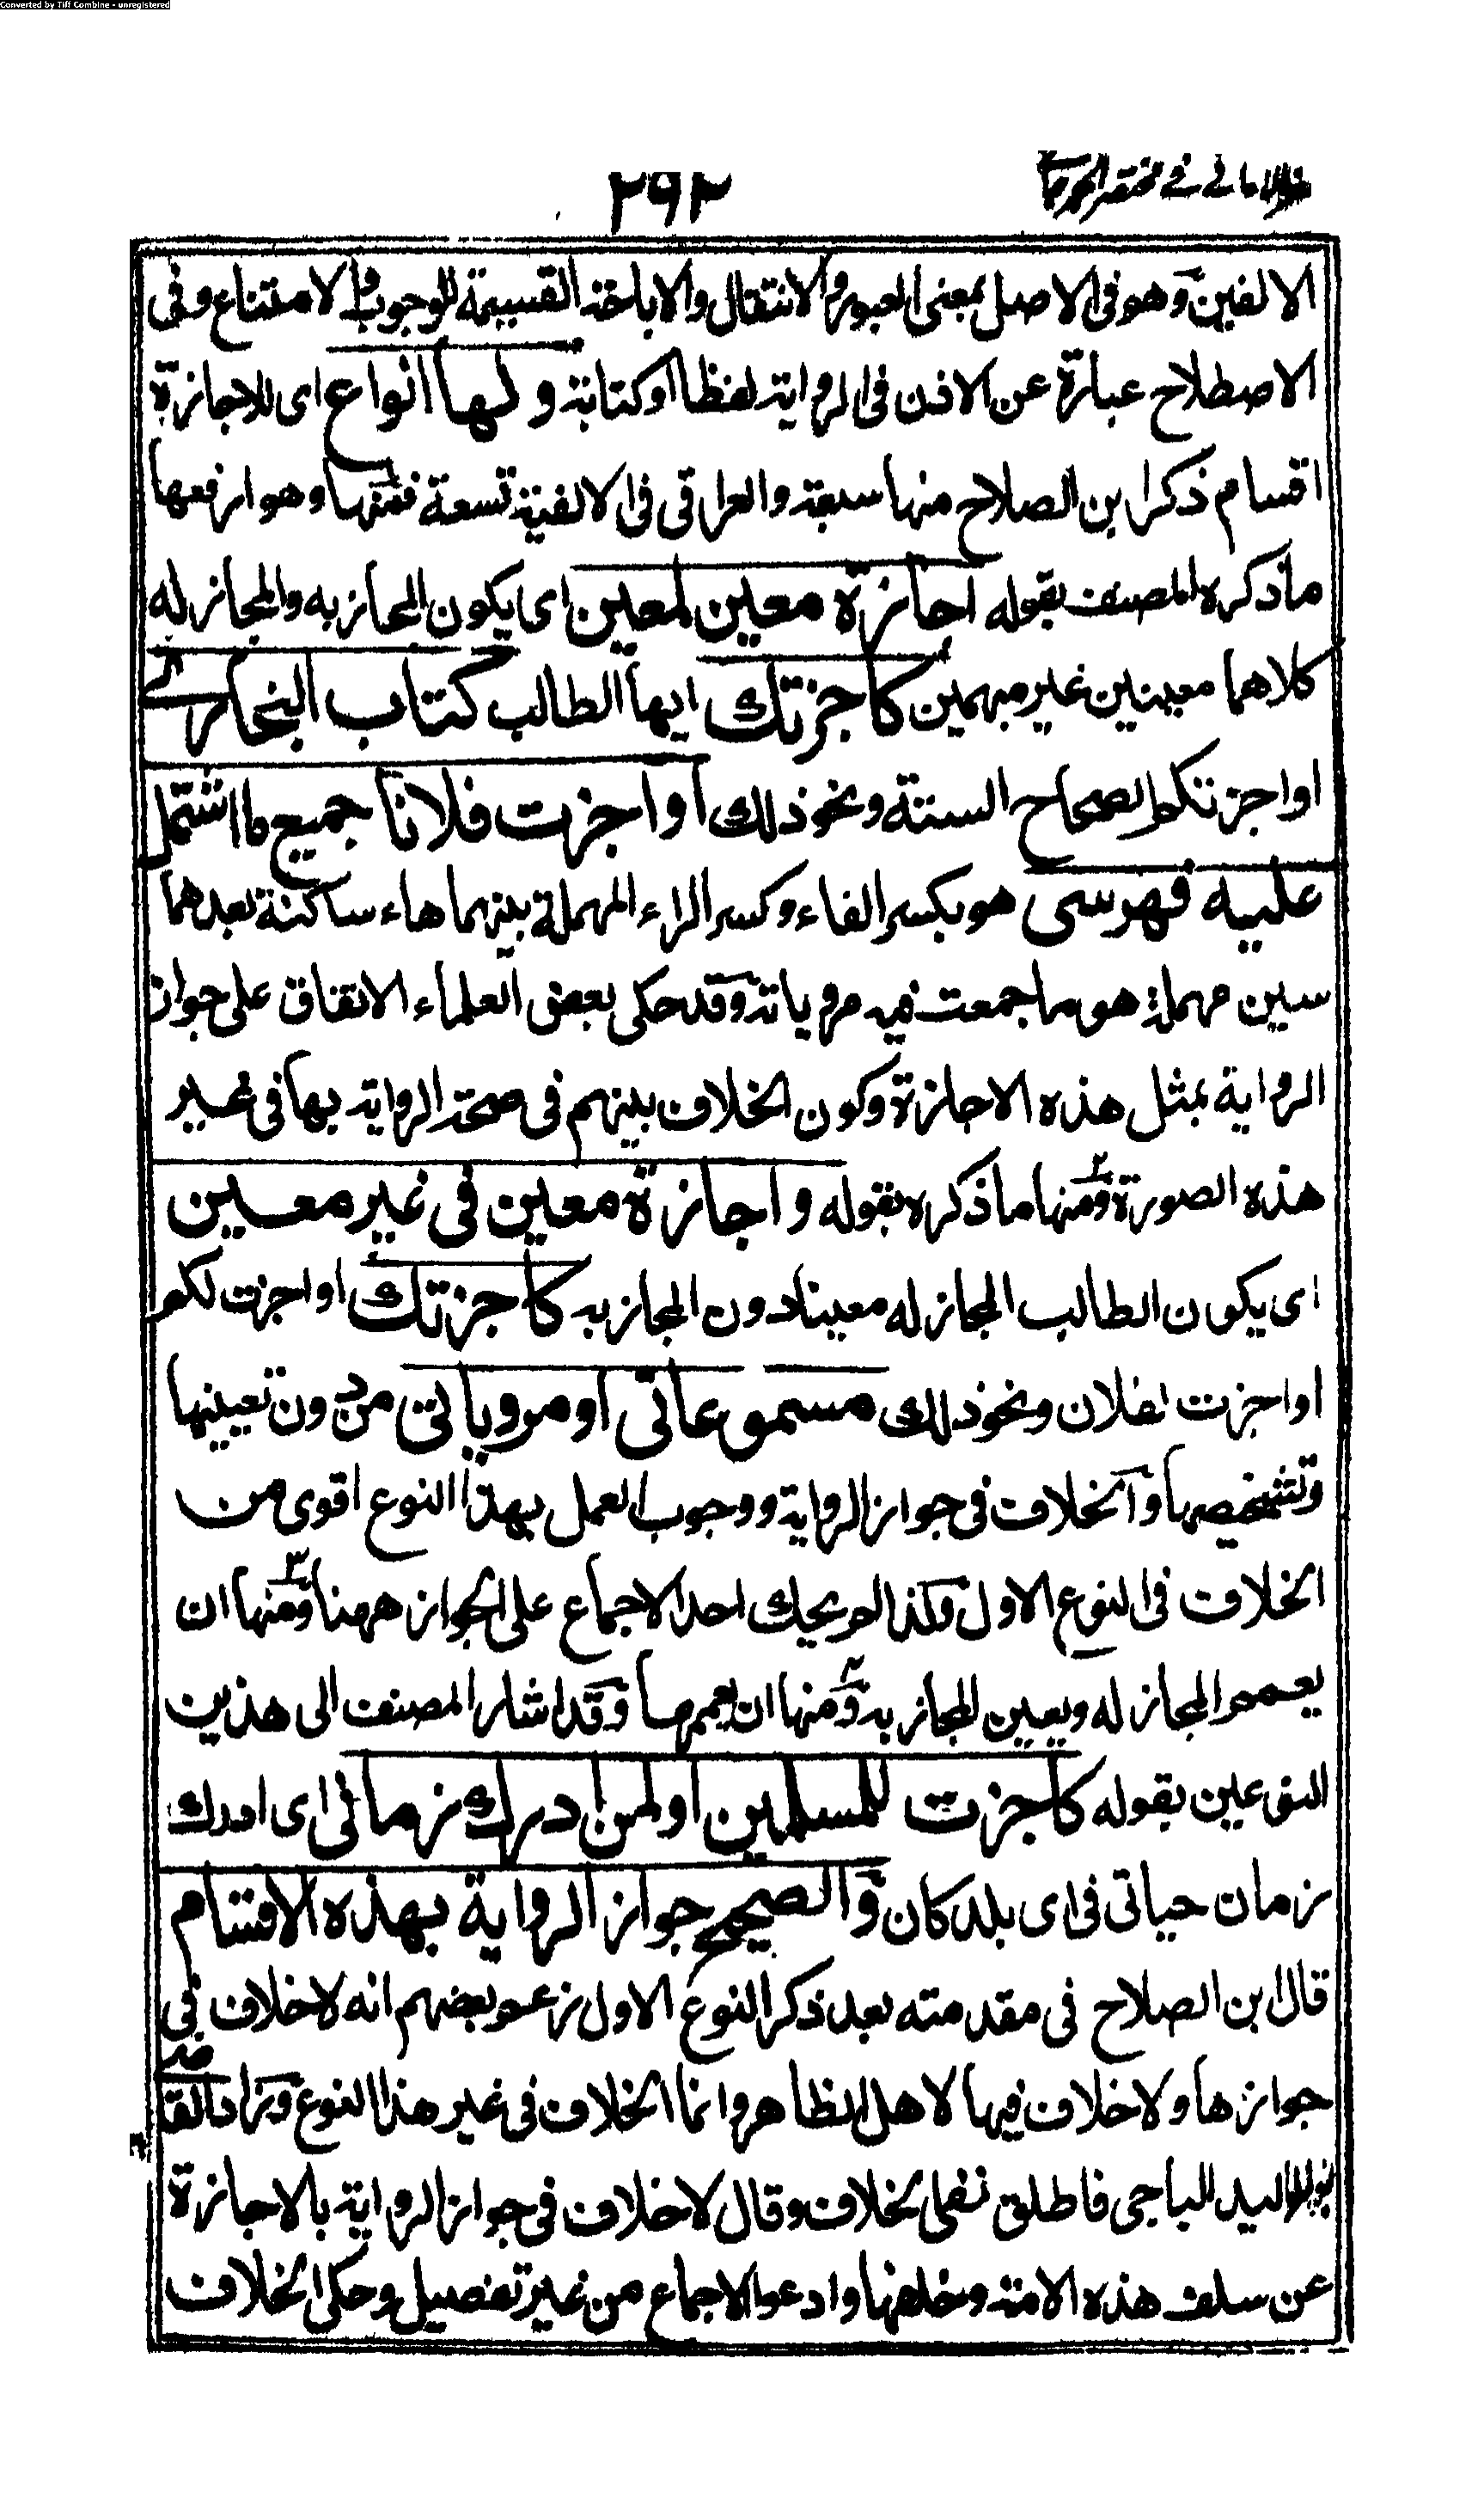 Converted by Tiff Combine - unregistered
ظفر الامانى فى مختصر الجرجانى
٢٩٢
الالفين وهو فى الاصل بمعنى العبور والانتقال والاباحة القسيمة للوجوب والامتناع وفى
الاصطلاح عبارة عن الاذن فى الرواية لفظا او كتابة ولها انواع اى للاجازة
اقسام ذكر ابن الصلاح منها سبعة والعراقى فى الالفية تسعة فمنها وهو ارفعها
ما ذكره المصنف بقوله اجازة معين لمعين اى يكون المجاز به والمجاز له
كلاهما معينين غير مبهمين كاجزتك ايها الطالب كتاب البخارى
او اجزتكم الصحاح الستة ونحو ذلك او اجزت فلانا جميع ما اشتمل
عليه فهرسى هو بكسر الفاء وكسر الراء المهملة بينهما هاء ساكنة بعدهما
سين مهملة هو ما جمعت فيه مروياته وقد حكى بعض العلماء الاتفاق على جواز
الرواية بمثل هذه الاجازة وكون الخلاف بينهم فى صحة الرواية بها فى غير
هذه الصورة ومنها ٢ ما ذكره بقوله واجازة معين فى غير معين
اى يكون الطالب المجاز له معينا دون المجاز به كاجزتك او اجزت لكم
او اجزت لفلان ونحو ذلك مسموعاتى او مروياتى من دون تعيينها
وتشخيصها والخلاف فى جواز الرواية ووجوب العمل بهذا النوع اقوى من
الخلاف فى النوع الاول وكذا لم يحك احد الاجماع على الجواز ههنا ومنها ٣ ان
يعمم المجاز له ويعين المجاز به ومنها ٤ ان يعممهما وقد اشار المصنف الى هذين
النوعين بقوله كاجزت للمسلمين او لمن ادرك زمانى اى ادرك
زمان حياتى فى اى بلد كان والصحيح جواز الرواية بهذه الاقسام
قال ابن الصلاح فى مقدمته بعد ذكر النوع الاول زعم بعضهم انه لا خلاف فى
جوازها ولا خلاف فيها لاهل الظاهر وانما الخلاف فى غير هذا النوع وزاد القاضى
ابو الوليد الباجى فاطلق نفى الخلاف وقال لا خلاف فى جواز الرواية بالاجازة
عن سلف هذه الامة وخلفها وادعو الاجماع من غير تفصيل وحكى الخلاف